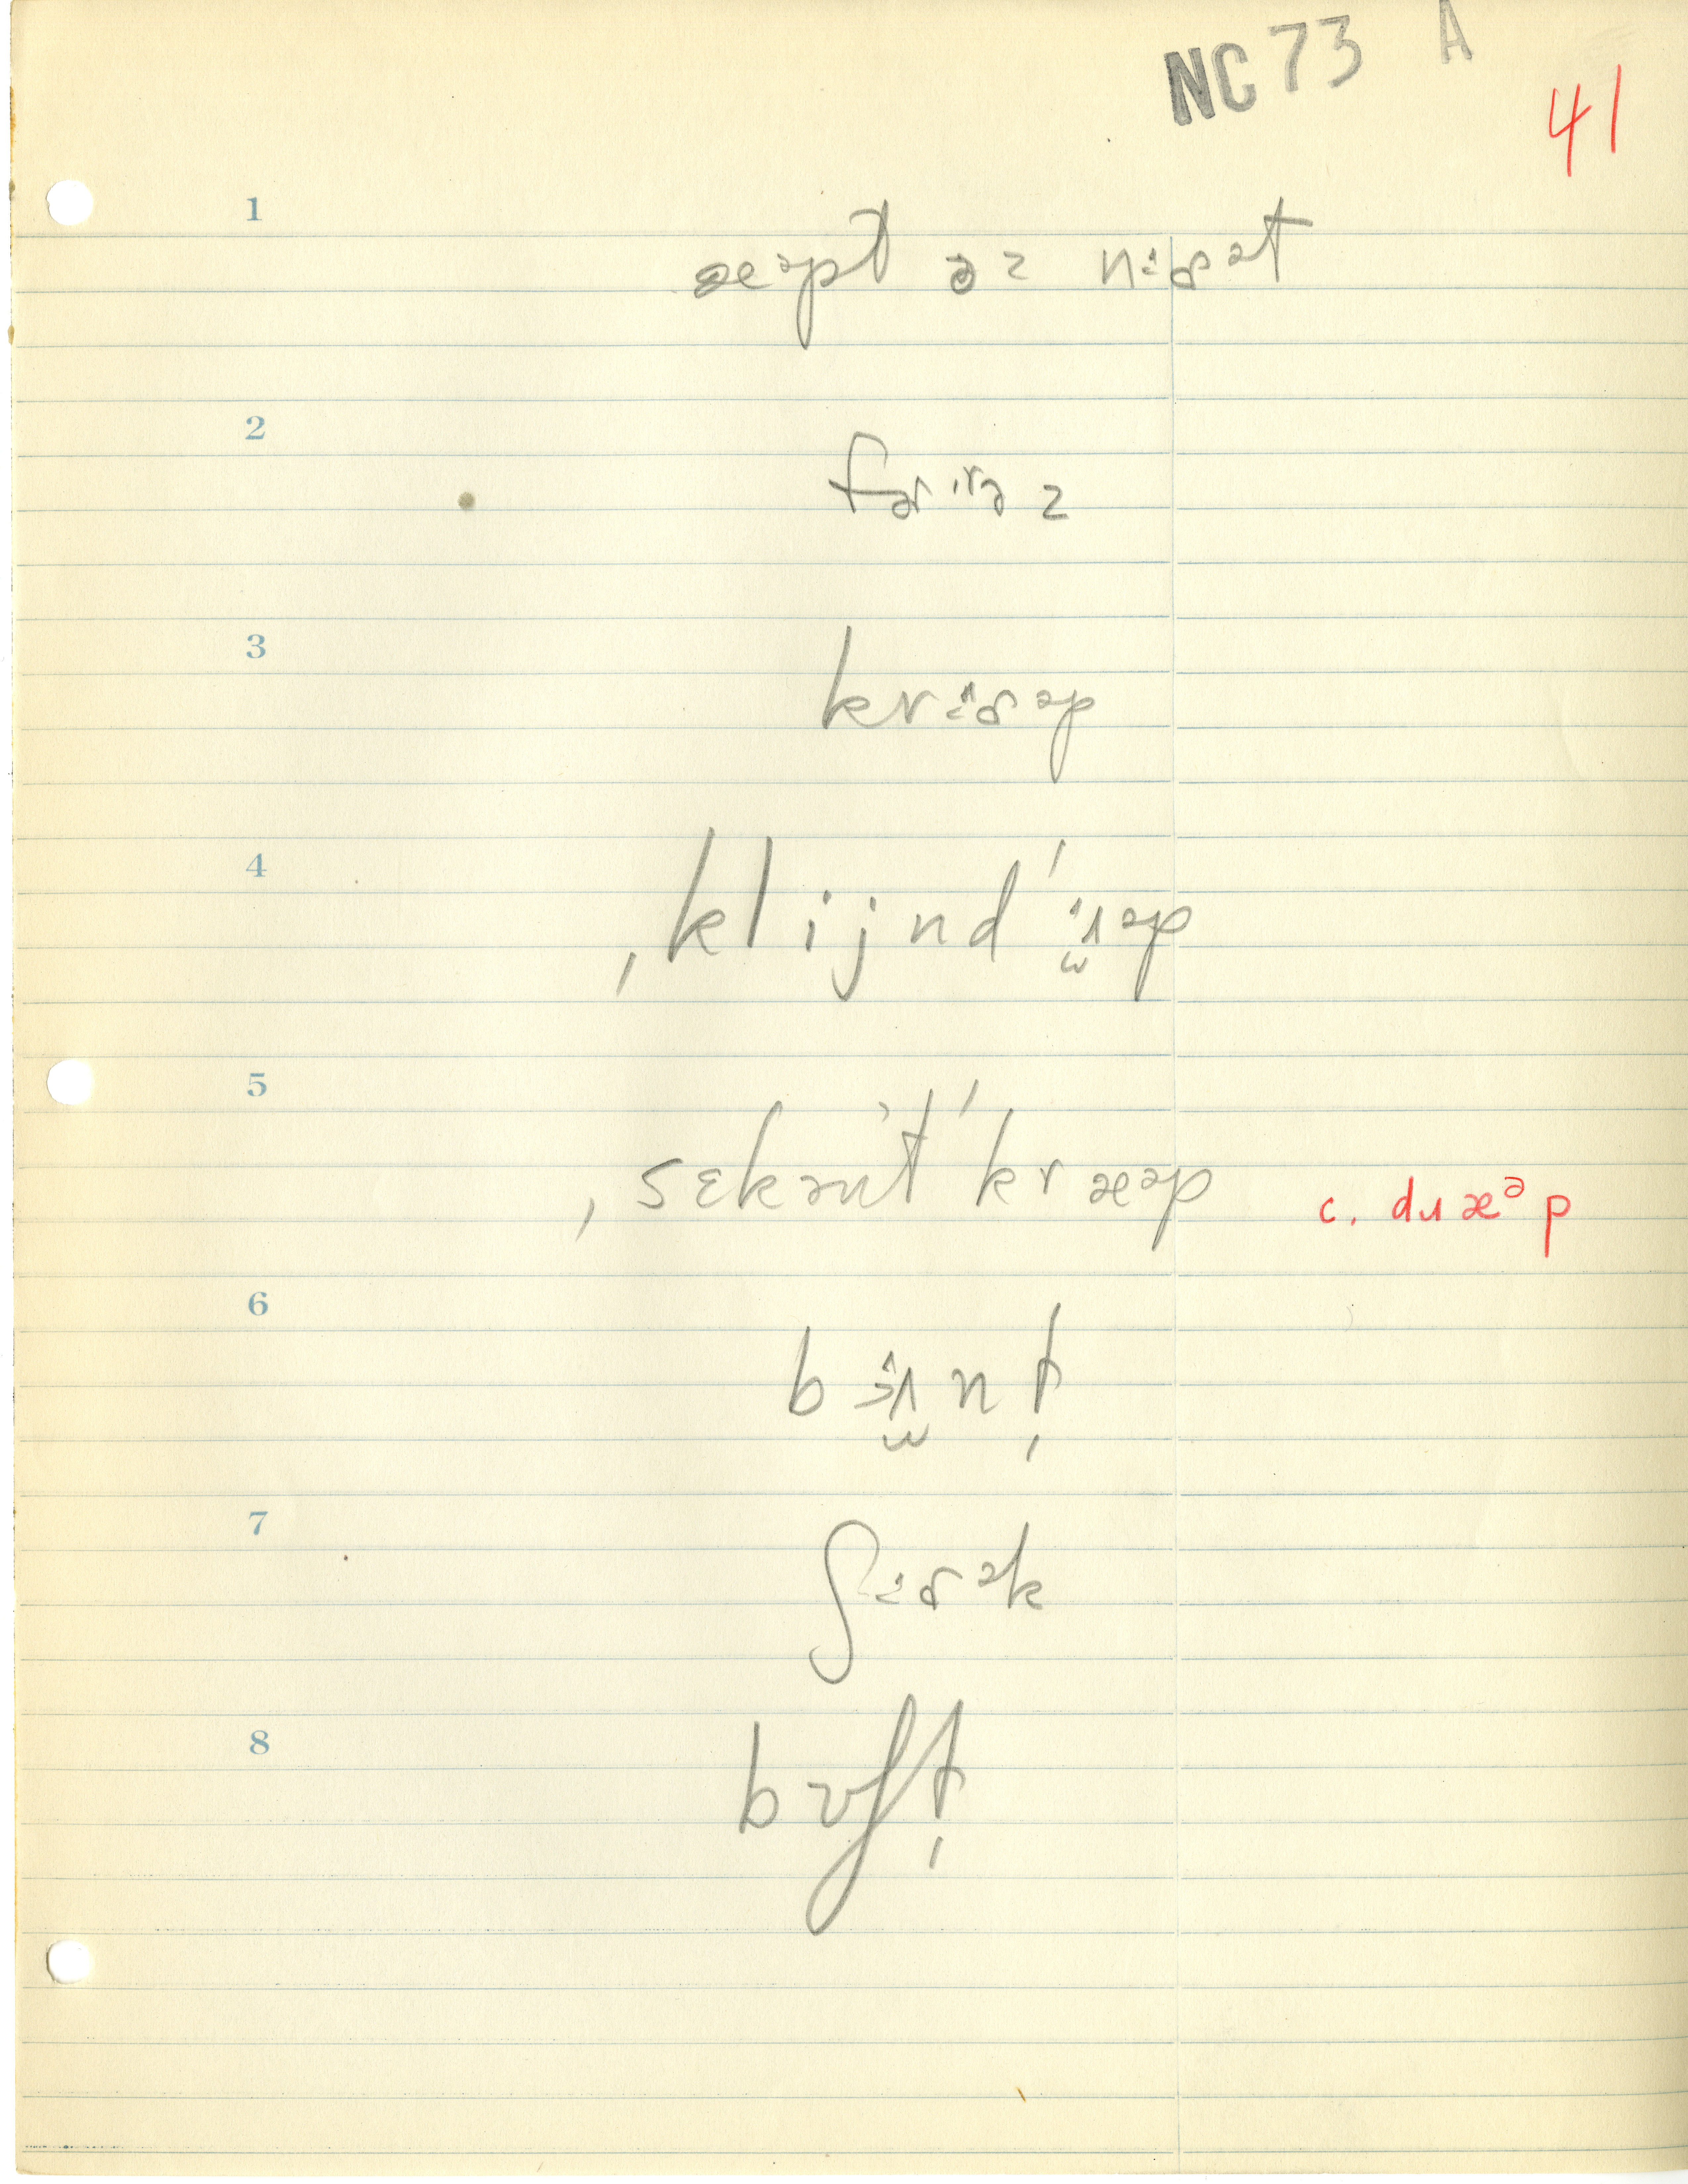 NC 73 A
41
1
æəpt əz nɨɚət
2
fɚɪrəz
3
krɨɚəp
4
ˌklijnd ˈɪʌəp
5
ˌsɛkəut ˈkræəp c. duæᵊp
6
b nt
7
ʃɨɚək
8
bʊft